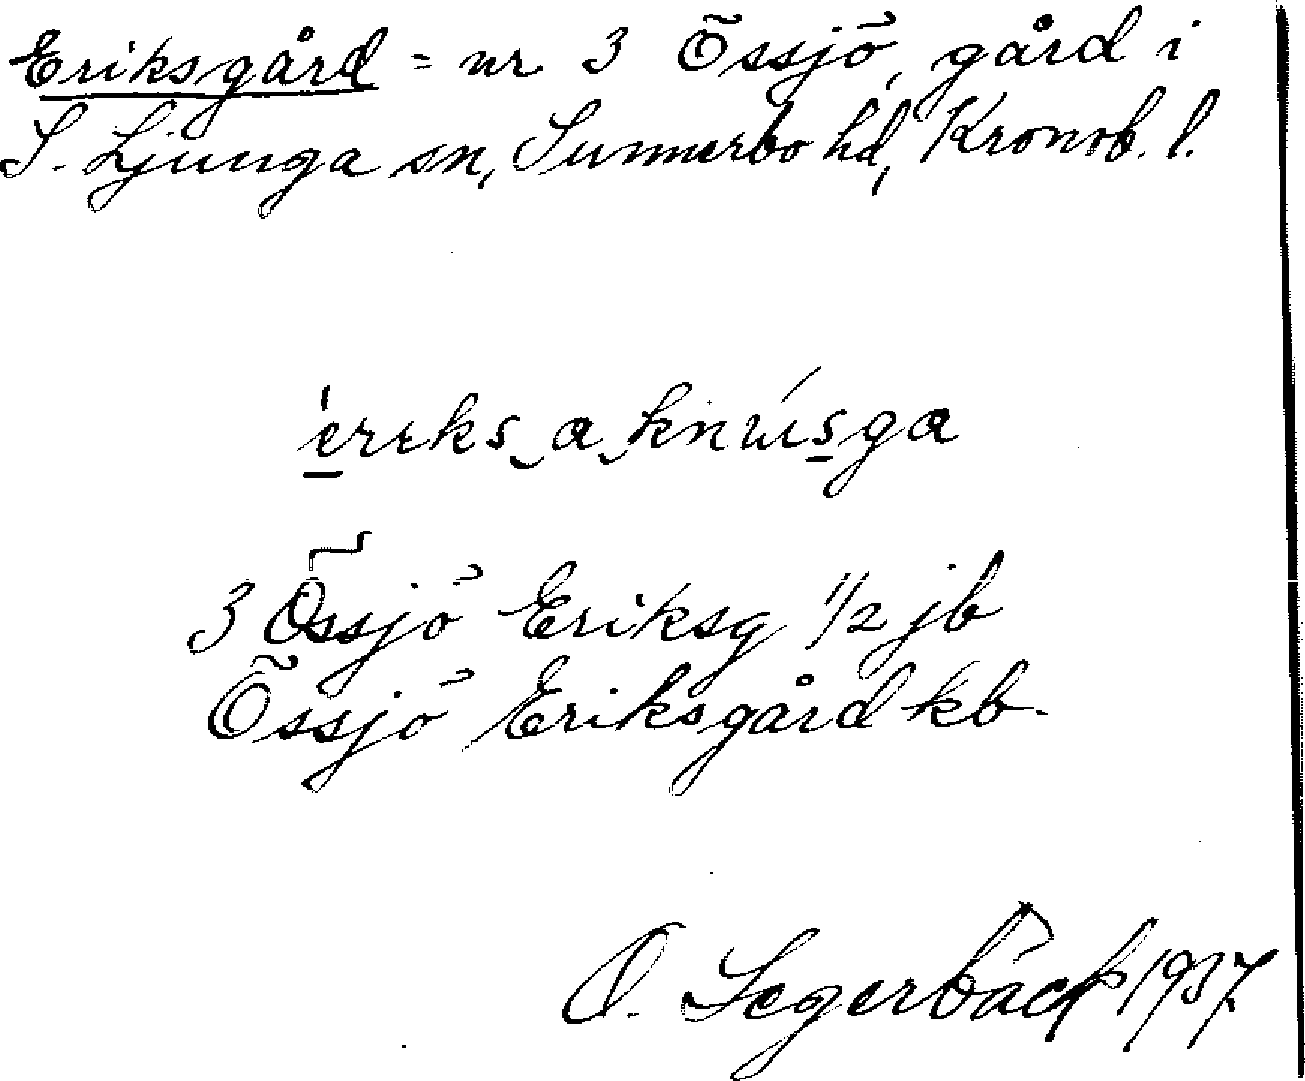 Eriksgård = nr 3 Össjö, gård i
S. Ljunga sn, Sunnerbo hd, Kronob. l.
3 Össjö Eriksg 1/2 jb
Össjö Eriksgård kb.
O. Segerbäck 1937